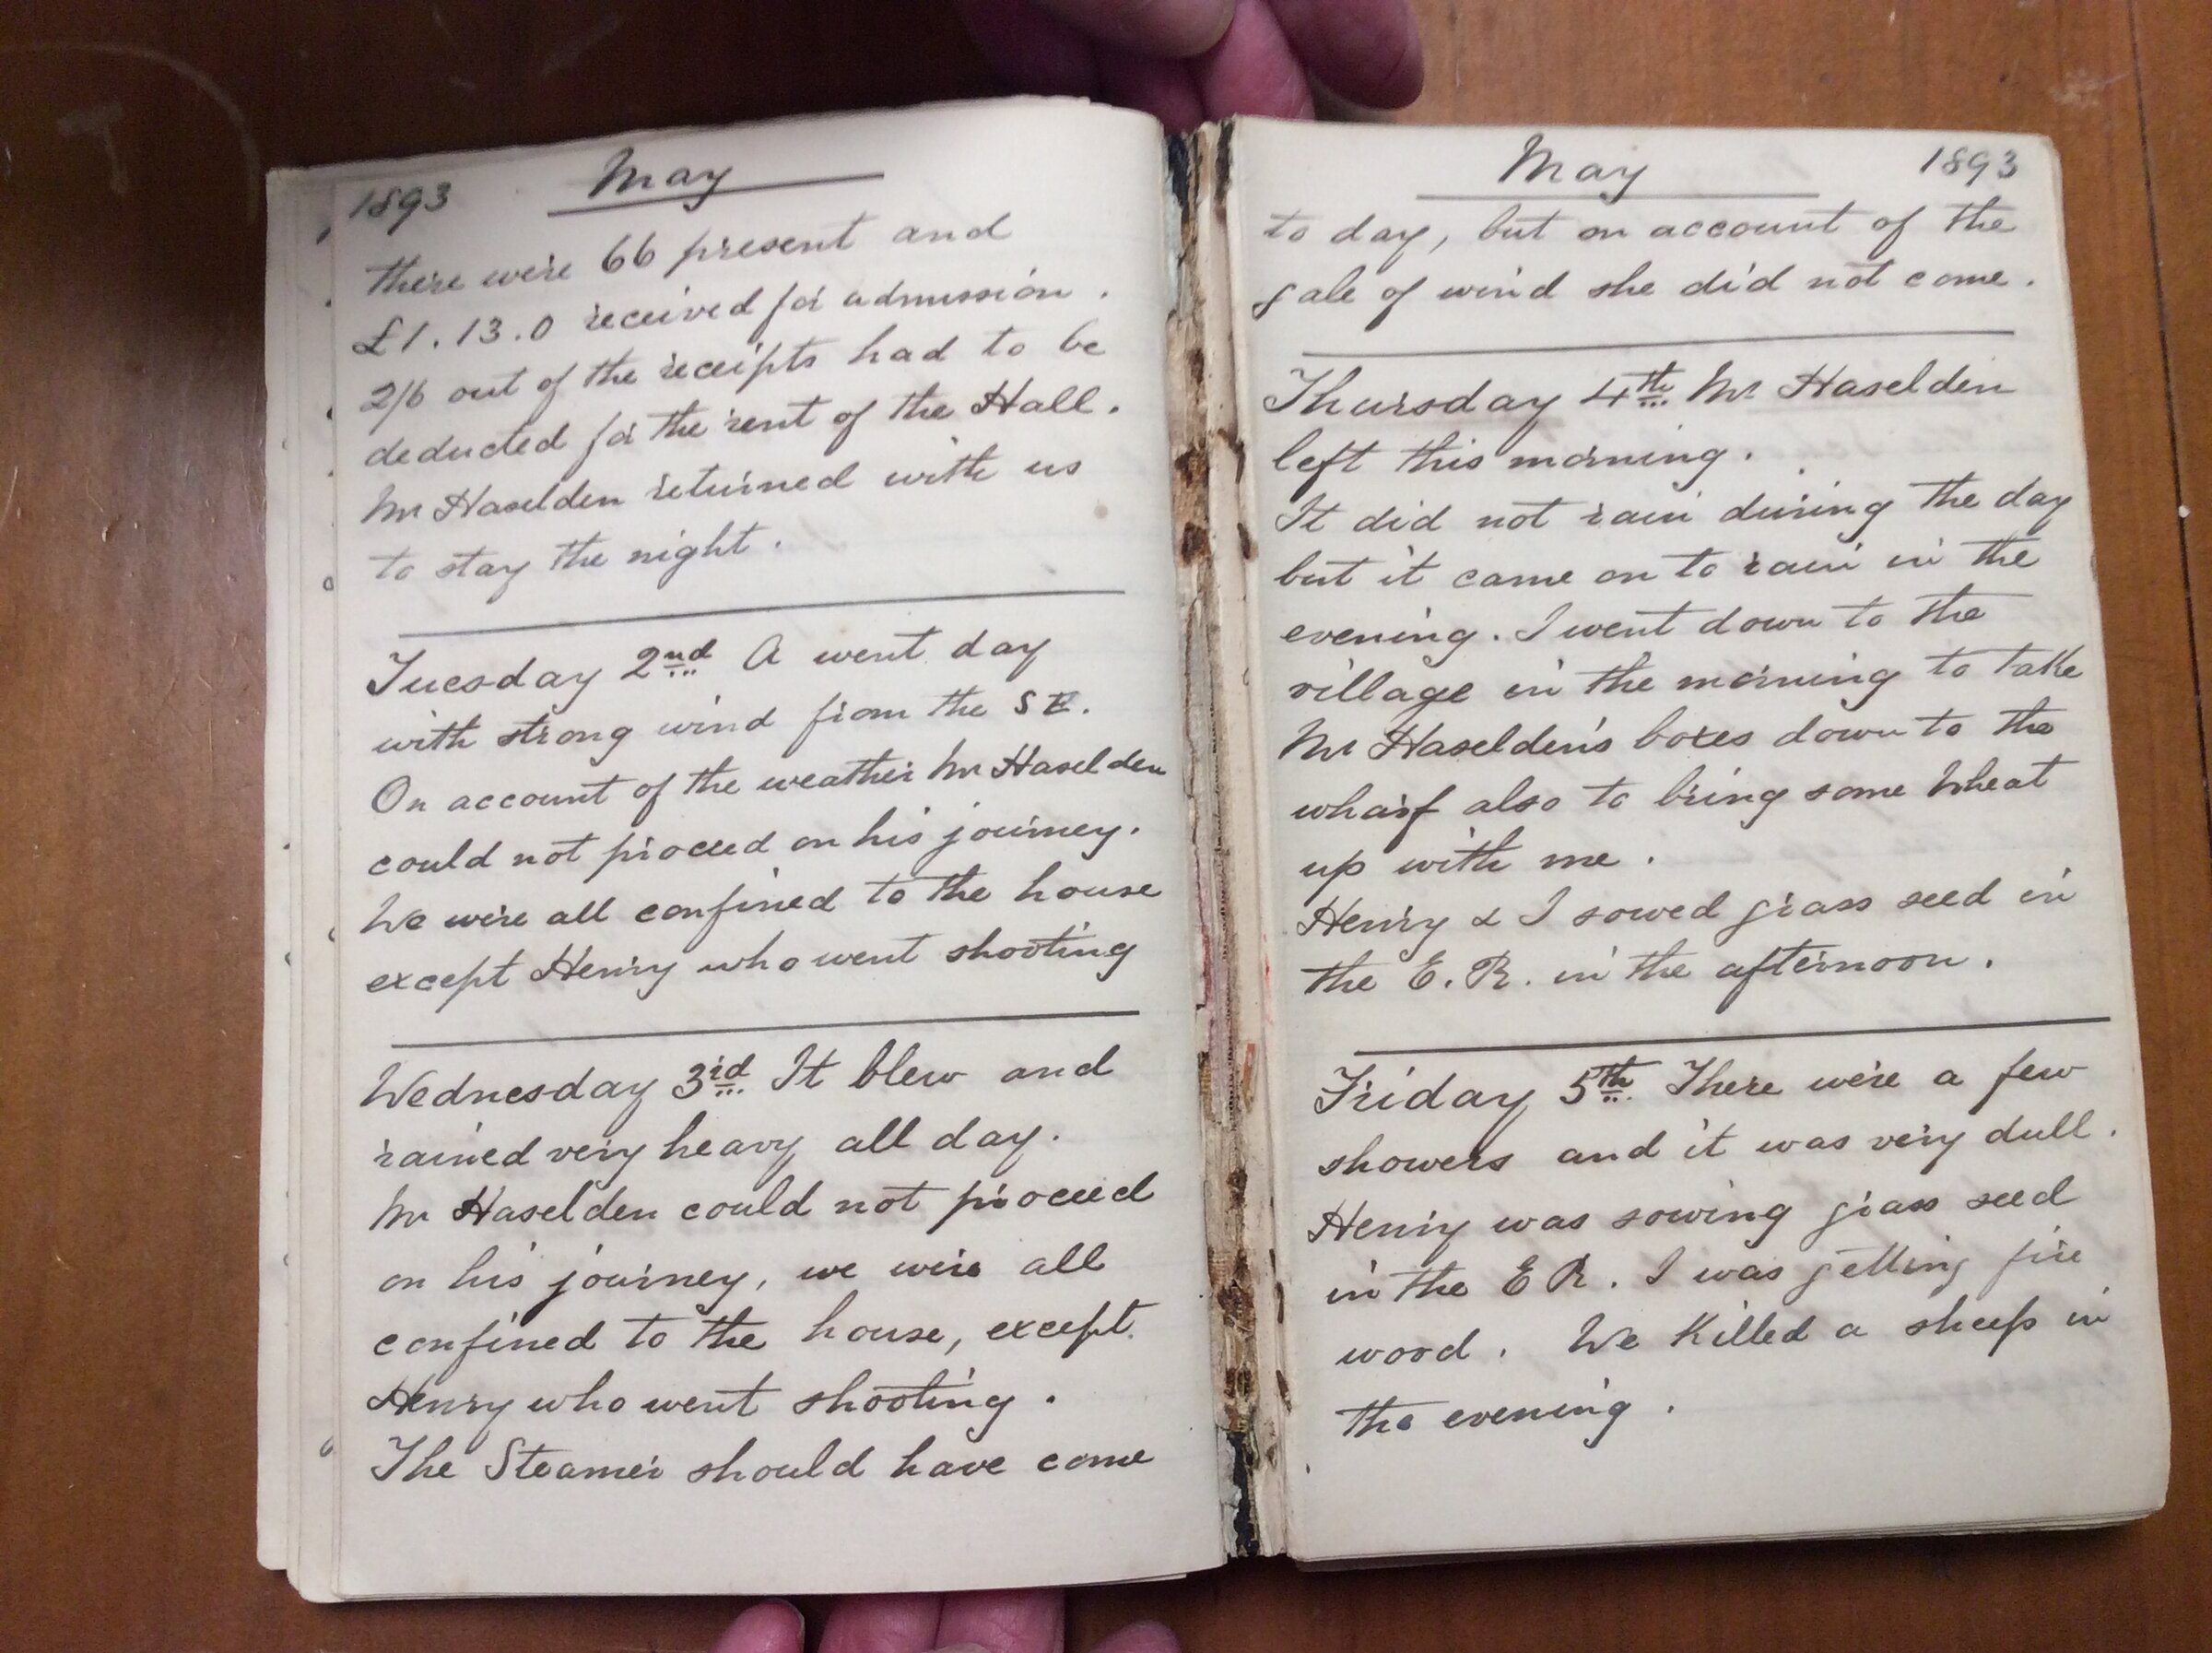 1893 May
there were 66 present and
£1.13.0 received for admission.
2/6 out of the receipts had to be
deducted for the rent of the Hall.
Mr Haselden returned with us
to stay the night.
Tuesday 2nd A went day
with strong wind from the SE.
On account of the weather Mr Haselden
could not proceed on his journey.
We were all confined to the house
except Henry who went shooting
Wednesday 3rd It blew and
rained very heavy all day.
Mr Haselden could not proceed
on his journey, we were all
confined to the house, except.
Henry who went shooting.
The Steamer should have come
May 1893
to day, but on account of the
gale of wind she did not come.
Thursday 4th Mr Haselden
left this morning.
It did not rain during the day
but it came on to rain in the
evening. I went down to the
village in the morning to take
Mr Haselden's boxes down to the
wharf also to bring some Wheat
up with me.
Henry & I sowed grass seed in
the E.R. in the afternoon.
Friday 5th There were a few
showers and it was very dull.
Henry was sowing grass seed
in the E R. I was getting fire
wood. We Killed a sheep in
the evening.